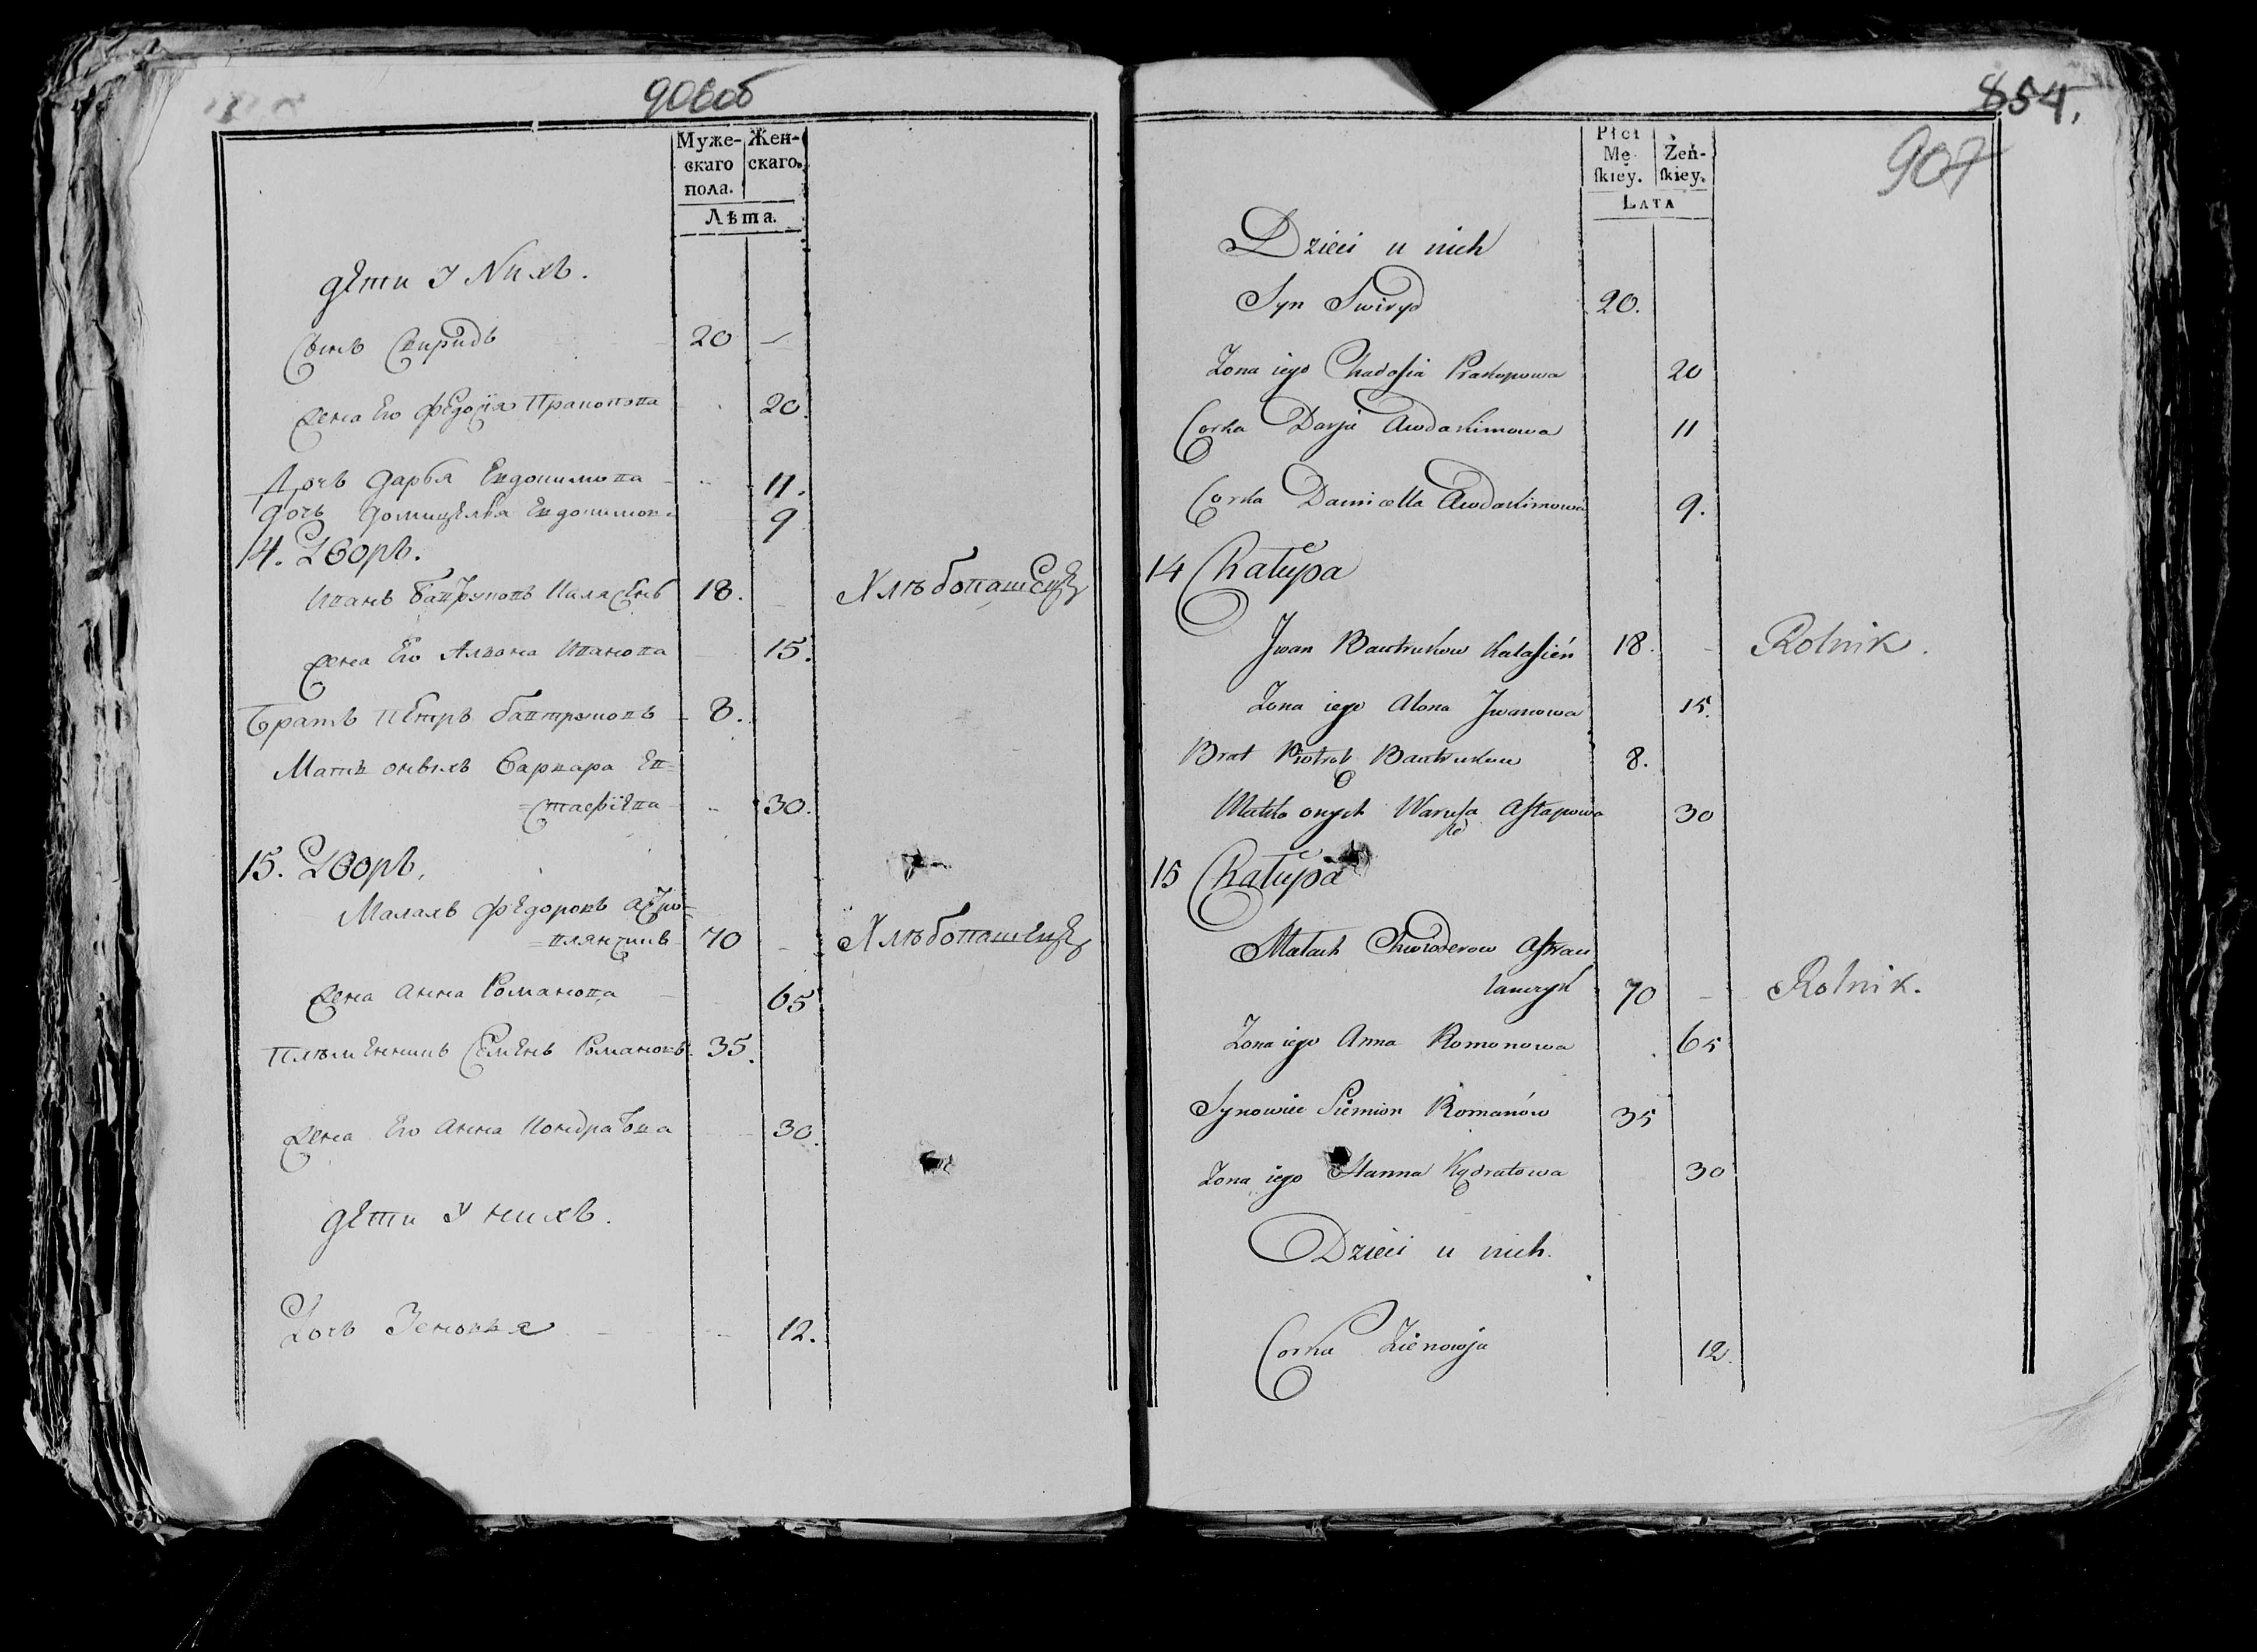 906об
Муже- Жен-
скаго скаго.
пола.
Лѣта.
дѣти у Нихъ.
Сынъ Свиридъ 20 —
Жена Его Федосiя Прокопова 20.
Дочь Дарья Евдокимова 11.
дочь Домицеля Евдокимова 9
14. Дворъ.
Иванъ Бавтруковъ Каласень 18. Хлѣбопашецъ
Жена Его Алiона Иванова 15.
Братъ Петръ Бавтруковъ 8.
Мать оныхъ Варвара Ев=
=стафiева 30.
15. Дворъ.
Малахъ Федоровъ
70 — Хлѣбопашецъ
Жена Анна Романова 65
Племенникъ Семенъ Романовъ 35.
Жена Его Анна Кондратьва 30.
дѣти у нихъ.
Дочь Зеновья 12.
854.
907
Płci
Mę- Żeń-
skiey. skiey.
LATA
Dzieci u nich
Syn Swiryd 20.
Zona iego Chadosia Prakopowa 20
Corka Darja Awdakimowa 11
Corka Damicella Awdakimowa 9.
14 Chałupa
Jwan Bawtrukow Kalasień 18. - Rolnik.
Zona iego Alona Jwanowa 15.
Brat Piotrok Bautrukow 8.
Matka onych Warusa Astapowa 30
15 Chałupa
Małach Chwioderow Astrau
lanczyk 70 - Rolnik.
Zona iego Anna Romonowa 65
Synowiec Siemion Romanów 35
Zona iego Hanna Kądratowa 30
Dzieci u nich.
Corka Zienowja 12.